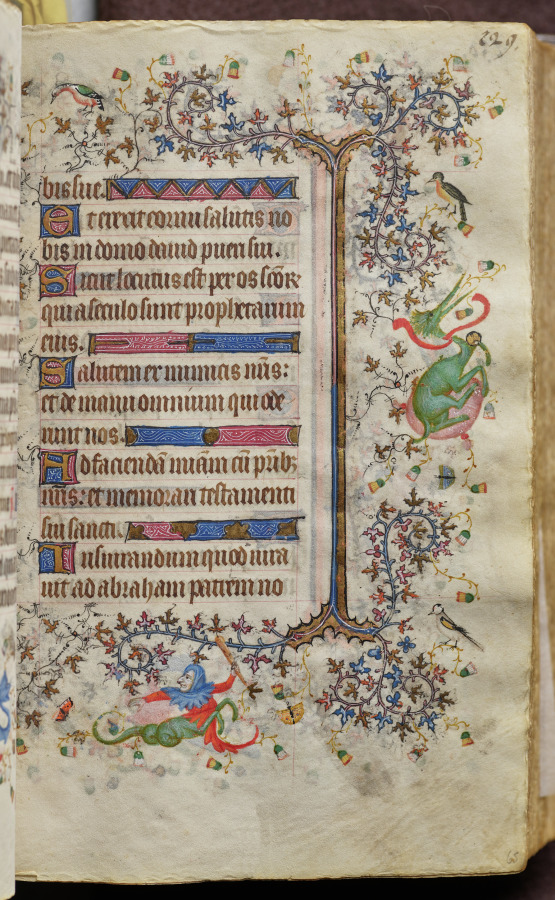 229
bis sue.
Et erexit cornu salutis no
bis in domo dauid pueri sui.
Sicut locutus est per os scōꝝ
qui a seculo sunt prophetarum
eius.
Salutem ex inimicis nr̄is:
et de manu omnium qui ode
runt nos.
Ad faciendā miām cū pr̄ib;
nr̄is: et memorari testamenti
sui sancti.
Iusiurandum quod iura
uit ad abraham patrem no